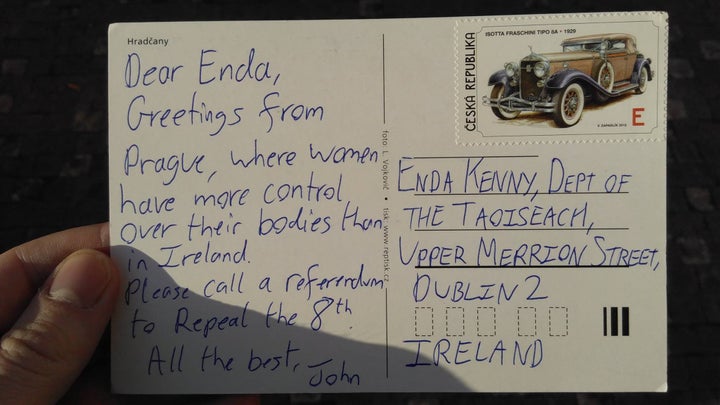 Hradčany
Dear Enda,
Greetings from
Prague, where women
have more control
over their bodies than
in Ireland.
Please call a referendum
to Repeal the 8th.
All the best,
John
foto I. Vojkovič • tisk www.reptisk.cz
ISOTTA FRASCHINI TIPO 8A • 1929
ČESKÁ REPUBLIKA
E
ENDA KENNY, DEPT OF
THE TAOISEACH,
UPPER MERRION STREET,
DUBLIN 2
IRELAND